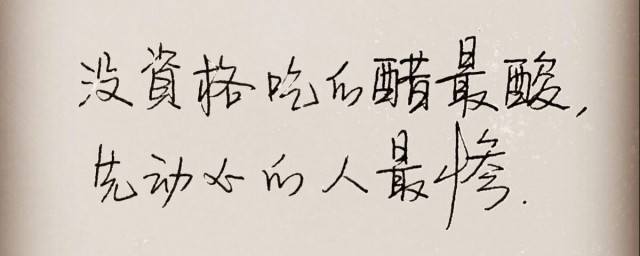 没資格吃的醋最酸,
先动心的人最惨.